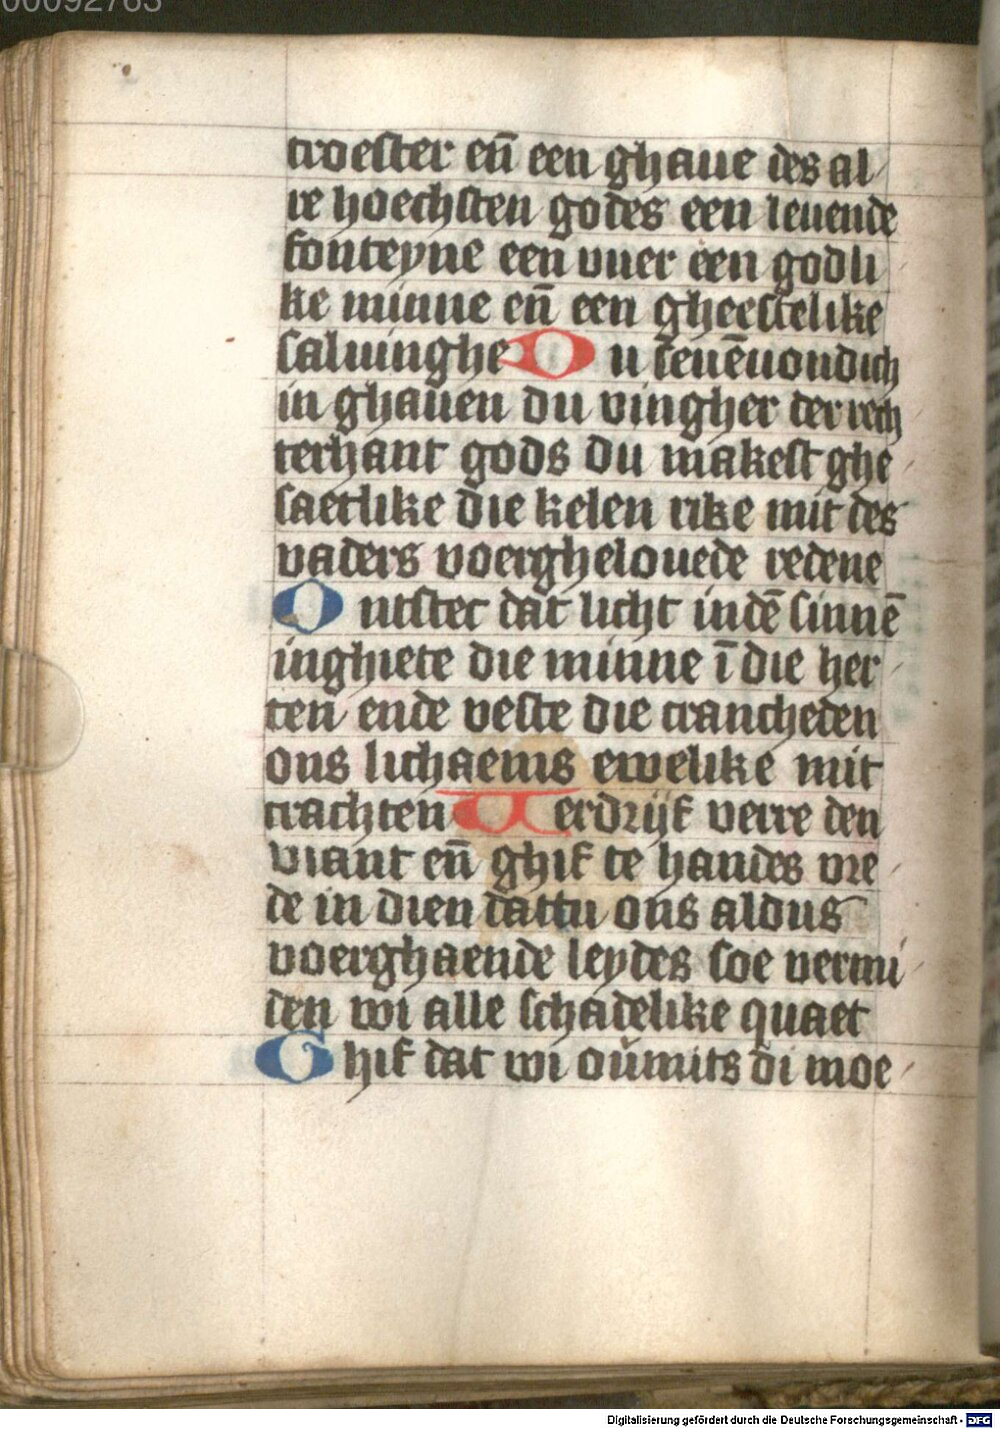 00092763
troester en̄ een ghaue des al/
re hoechsten godes een leuende
fonteyne een vuer een godli/
ke minne en̄ een gheestelike
saluinghe Du seuēuondich
in ghauen du vingher der rech
terhant gods du makest ghe/
saetlike die kelen rike mit des
vaders voerghelouede redene
Ontstect dat licht indē sinnē
inghiete die minne ī die her/
ten ende veste die crancheden
ons lichaems ewelike mit
crachten Verdrijf verre den
viant en̄ ghif te handes vre/
de in dien dattu ons aldus
voerghaende leydes soe vermi/
den wi alle schadelike quaet
Ghif dat wi ou̅mits di moe/
Digitalisierung gefördert durch die Deutsche Forschungsgemeinschaft - DFG